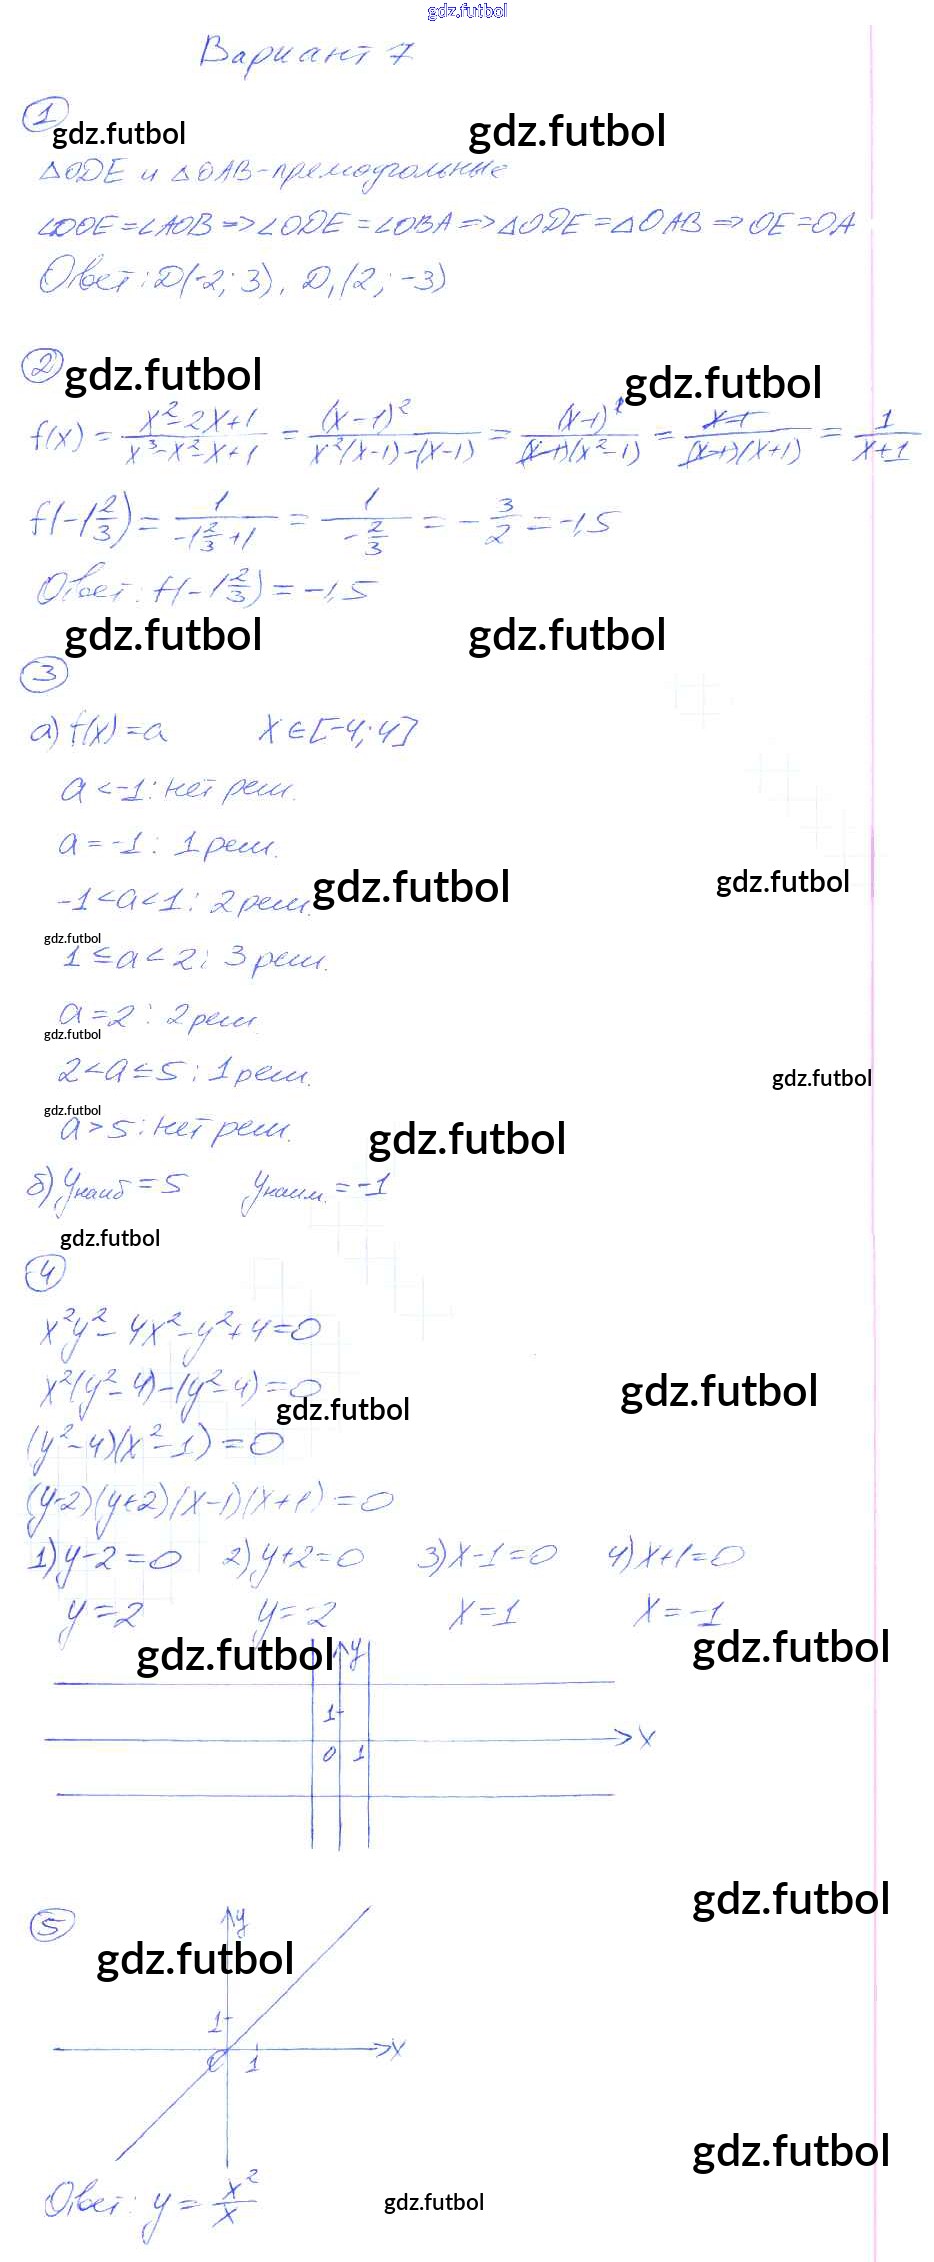 gdz.futbol
Вариант 7
1
gdz.futbol gdz.futbol
△ODE и △OAB - прямоугольные
∠DOE = ∠AOB => ∠ODE = ∠OBA => △ODE = △OAB => OE = OA
Ответ: D(-2; 3), D₁(2; -3)
2
gdz.futbol gdz.futbol
f(x) = (x²-2x+1)/(x³-x²-x+1) = (x-1)²/(x²(x-1)-(x-1)) = (x-1)²/((x-1)(x²-1)) = (x-1)/((x-1)(x+1)) = 1/(x+1)
f(-1 2/3) = 1/(-1 2/3 +1) = 1/(-2/3) = -3/2 = -1,5
Ответ: f(-1 2/3) = -1,5
gdz.futbol gdz.futbol
3
а) f(x) = a x∈[-4; 4]
a < -1: нет реш.
a = -1: 1 реш.
-1 < a < 1: 2 реш.
gdz.futbol gdz.futbol
gdz.futbol
1 ≤ a < 2: 3 реш.
a = 2: 2 реш.
gdz.futbol
2 < a ≤ 5: 1 реш.
gdz.futbol
gdz.futbol
a > 5: нет реш.
gdz.futbol
б) yнаиб = 5 yнаим. = -1
gdz.futbol
4
x²y² - 4x² - y² + 4 = 0
x²(y²-4) - (y²-4) = 0
gdz.futbol gdz.futbol
(y²-4)(x²-1) = 0
(y-2)(y+2)(x-1)(x+1) = 0
1) y-2=0 2) y+2=0 3) x-1=0 4) x+1=0
y=2 y=-2 x=1 x=-1
gdz.futbol gdz.futbol
y
1
x
0 1
gdz.futbol
5
y
gdz.futbol
1
x
0 1
gdz.futbol
Ответ: y = x²/x
gdz.futbol